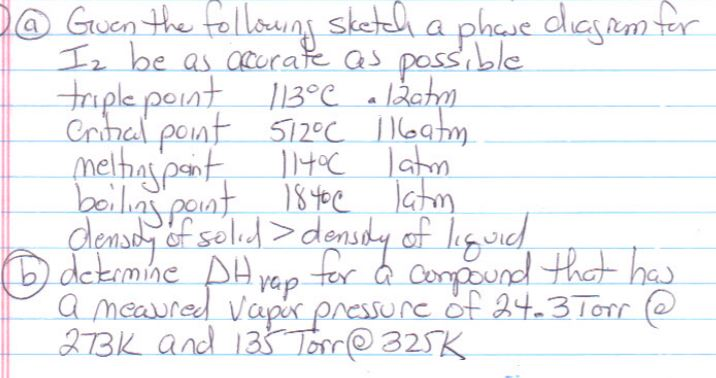 ⓐ Given the following sketch a phase diagram for
I₂ be as accurate as possible
triple point 113°C .12atm
Critical point 512°C 116atm
melting point 114°C 1atm
boiling point 184°C 1atm
density of solid > density of liquid
ⓑ determine ΔHvap for a compound that has
a measured vapor pressure of 24.3 Torr @
273K and 135 Torr @ 325K